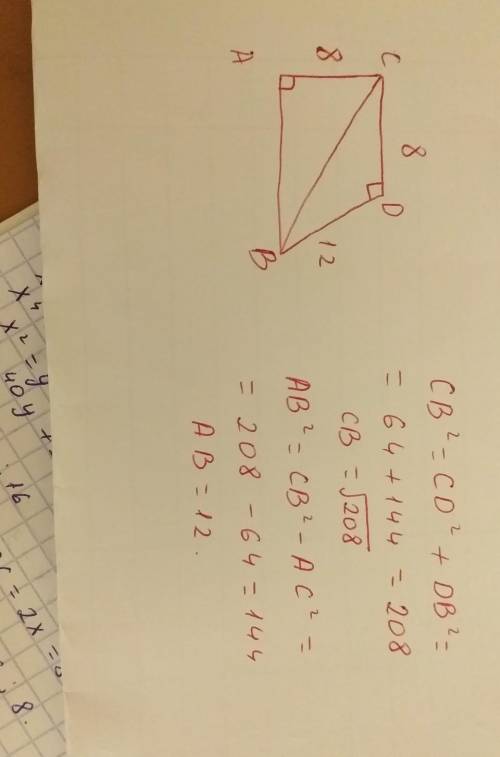 A
8
C
8
D
12
B
CB² = CD² + DB² =
= 64 + 144 = 208
CB = √208
AB² = CB² - AC² =
= 208 - 64 = 144
AB = 12.
x⁴
x² = y
40y
16
= 2x =
8.